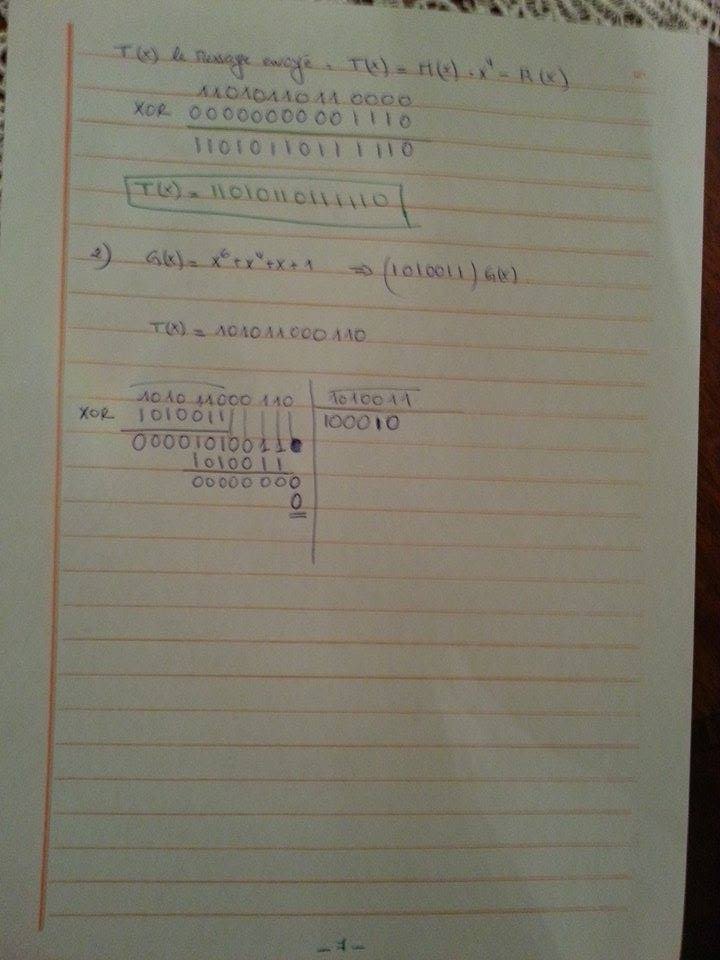 T(x) le Message envoyé. T(x) = M(x) . x⁴ - R(x)
11010110110000
XOR 00000000001110
11010110111110
T(x) = 11010110111110
2) G(x) = x⁶ + x⁴ + x + 1 ⇒ (1010011) G(x)
T(x) = 101011000110
101011000110 1010011
XOR 1010011 100010
00001010011
1010011
00000000
0
- 1 -